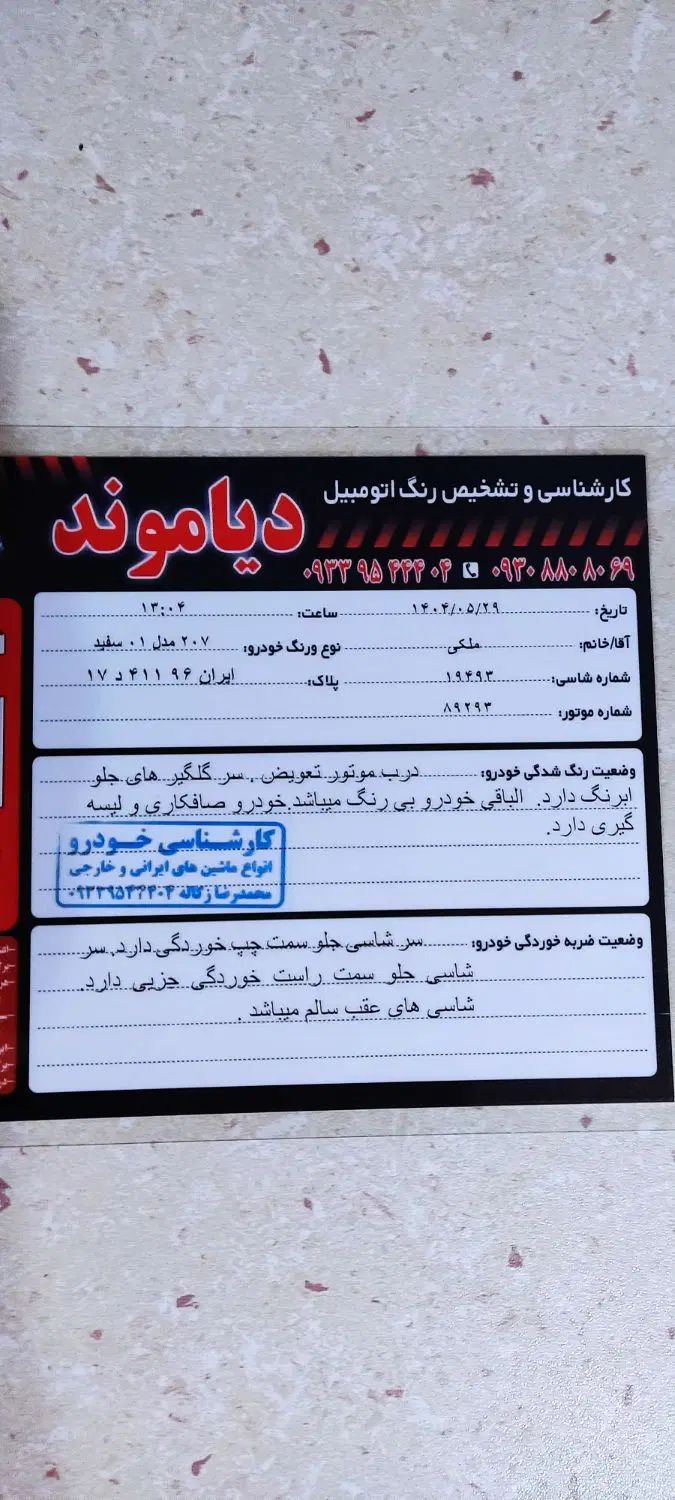 کارشناسی و تشخیص رنگ اتومبیل
دیاموند
۰۹۳۰ ۸۸۰ ۸۰ ۶۹
۰۹۳۳ ۹۵ ۴۴۴ ۰۴
تاریخ: ۱۴۰۴/۰۵/۲۹ ساعت: ۱۳:۰۴
آقا/خانم: ملکی نوع ورنگ خودرو: ۲۰۷ مدل ۰۱ سفید
شماره شاسی: ۱۹۴۹۳ پلاک: ایران ۹۶ ۴۱۱ د ۱۷
شماره موتور: ۸۹۲۹۳
وضعیت رنگ شدگی خودرو: درب موتور تعویض . سر گلگیر های جلو
ابرنگ دارد. الباقی خودرو بی رنگ میباشد.خودرو صافکاری و لیسه
گیری دارد.
کارشناسی خودرو
انواع ماشین های ایرانی و خارجی
محمدرضا زکاله ۰۹۳۳۹۵۴۴۴۰۴
وضعیت ضربه خوردگی خودرو: سر شاسی جلو سمت چپ خوردگی دارد. سر
شاسی جلو سمت راست خوردگی جزیی دارد.
شاسی های عقب سالم میباشد .